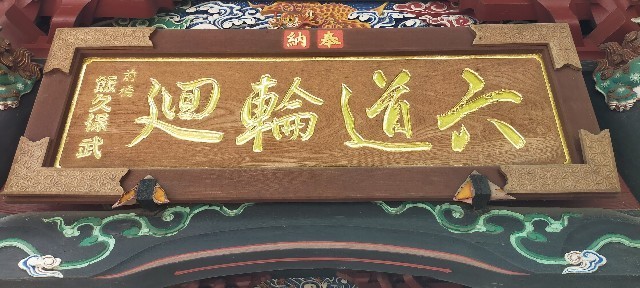 奉納
六道輪廻
前橋
飯久保武